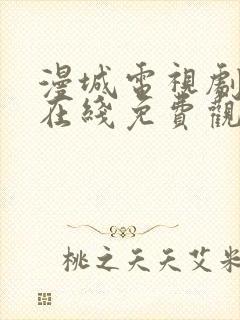 漫城電視劇
在綫免費觀
桃之天天艾米